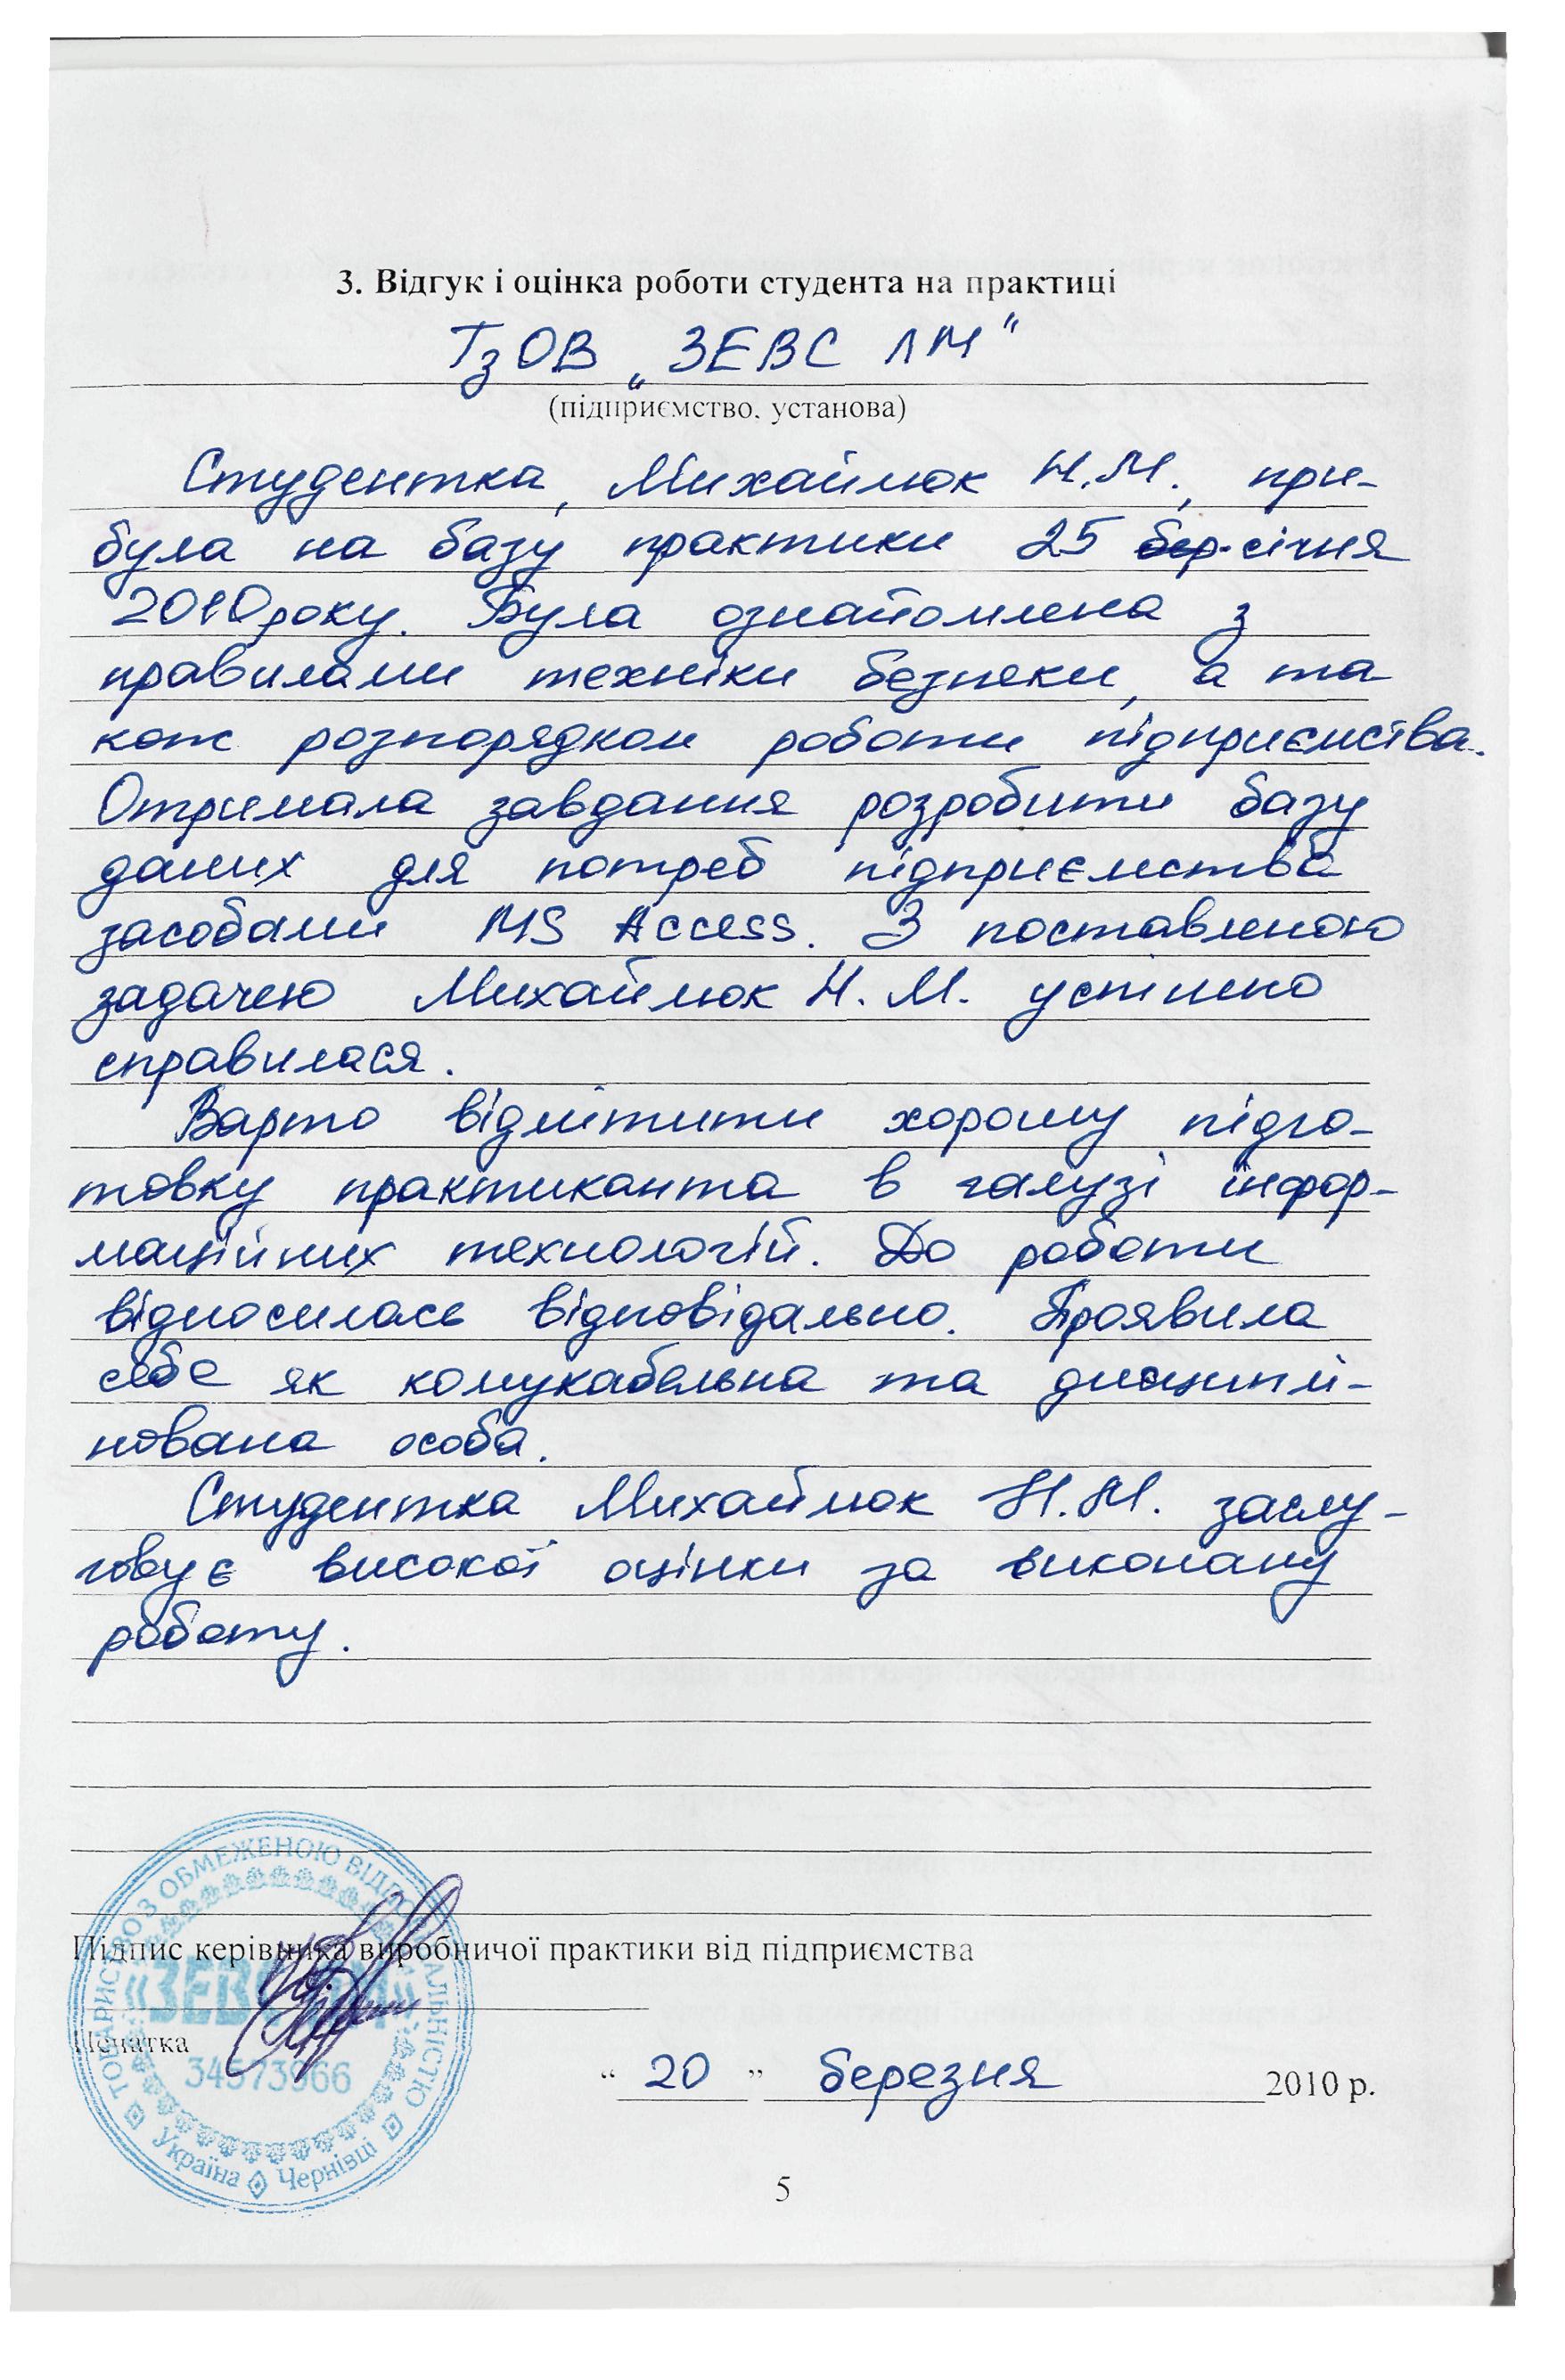 3. Відгук і оцінка роботи студента на практиці
ТзОВ „ЗЕВС ЛМ"
(підприємство, установа)
Студентка, Михайлюк Н.М., при-
була на базу практики 25 бер. січня
2010 року. Була ознайомлена з
правилами техніки безпеки, а та
кож розпорядком роботи підприємства.
Отримала завдання розробити базу
даних для потреб підприємства
засобами MS Access. З поставленою
задачею Михайлюк Н.М. успішно
справилася.
Варто відмітити хорошу підго-
товку практиканта в галузі інфор-
маційних технологій. До роботи
відносилась відповідально. Проявила
себе як комукабельна та дисциплі-
нована особа.
Студентка Михайлюк Н.М. заслу-
говує високої оцінки за виконану
роботу.
Підпис керівника виробничої практики від підприємства
Печатка
ТОВАРИСТВО З ОБМЕЖЕНОЮ ВІДПОВІДАЛЬНІСТЮ
«ЗЕВС ЛМ»
34573966
Україна Чернівці
“ 20 ” березня 2010 р.
5